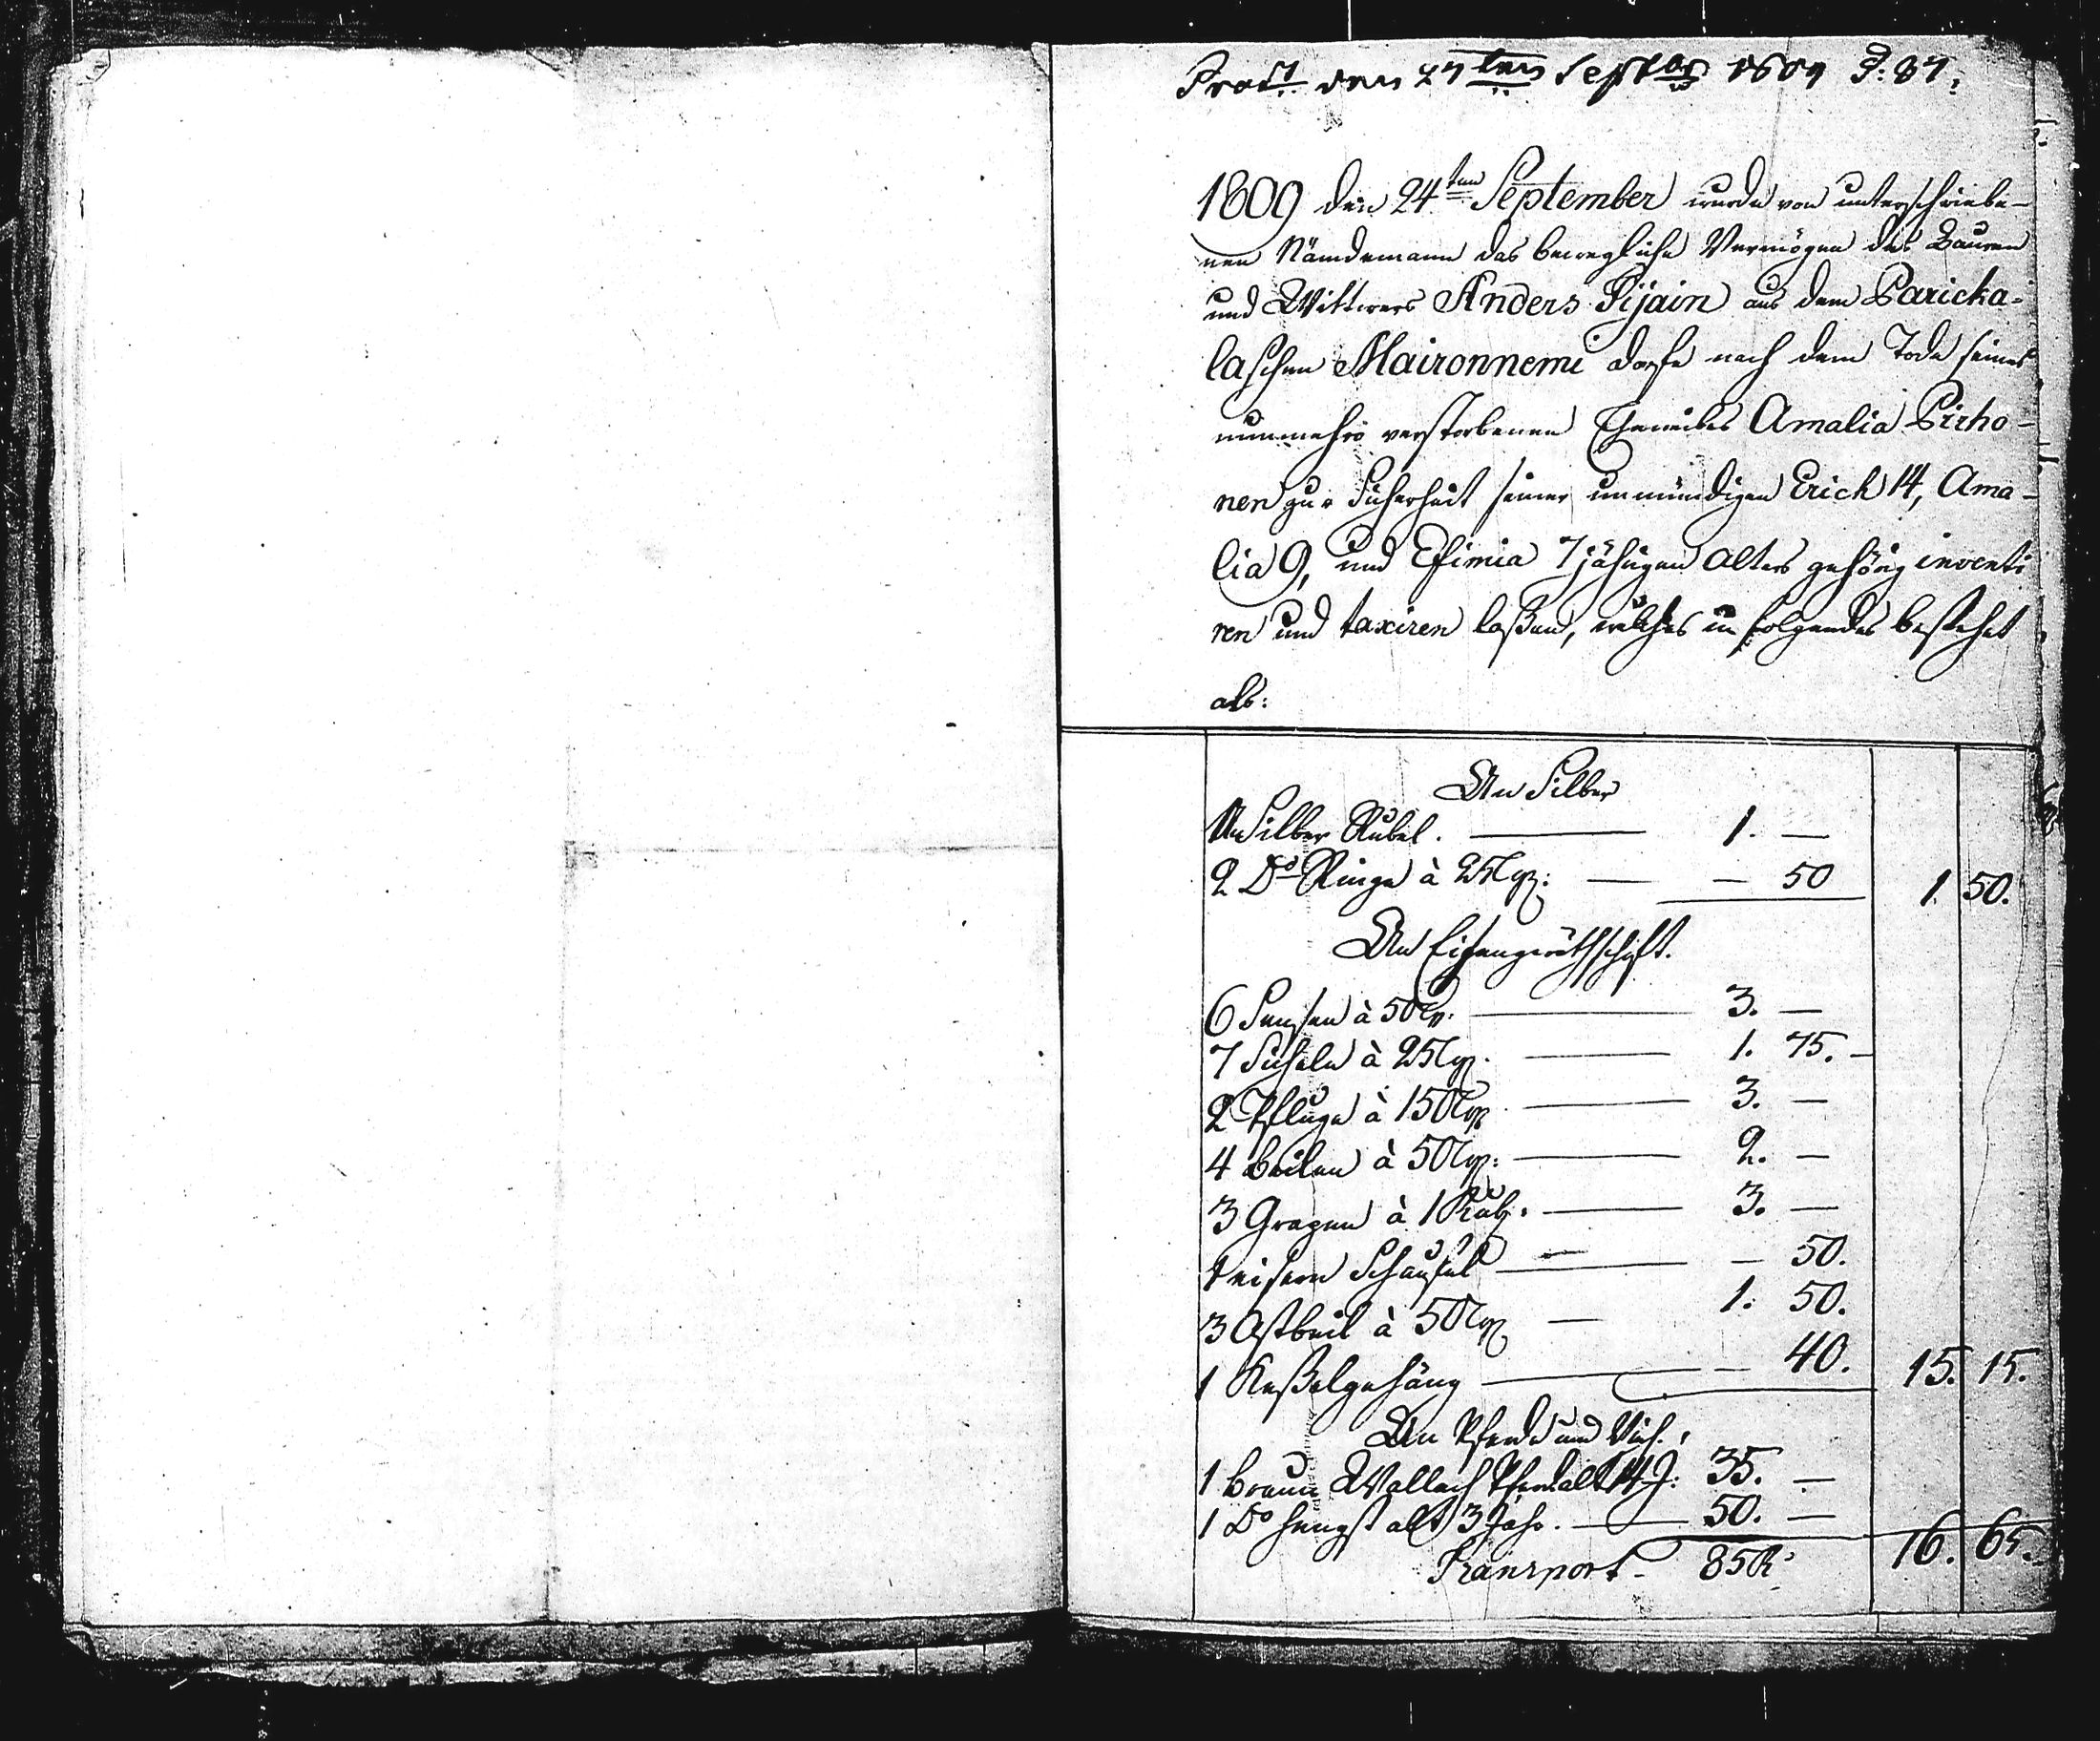 den 27ten Septbr 1809
1809 den 24ten September wurde von unterschriebe-
nen Nämdemann das bewegliche Vermögen des Bauren
und Wittwers Anders Pijain aus dem Paricka-
laschen Maironnemi dorfe nach dem Tode seines
nunmehro verstorbenen Eheweibes Amalia Pirho-
nen zur Sicherheit seiner unmündigen Erich 14, Ama-
lia 9, und Efimia 7 jährigen Alters gehörig inventi
ren und taxiren laßen, welches in folgendes bestehet
als:
An Silber
An Silber Rubel. 1. —
2 Do Ringe à 25 Cop: — 50 1. 50.
An Eisengeräthschaft.
6 Sensen à 50 Cp. 3. —
7 Sicheln à 25 Cop. 1. 75.
2 Pflüge à 150 Cop 3. —
4 Beilen à 50 Cop: 2. —
3 Grapen à 1 Rub. 3. —
1 eisern Schaufel — 50.
3 Astbeil à 50 Cop 1. 50.
1 Keßelgehäng — 40. 15. 15.
An Pferde und Vieh.
1 braun Wallach Pferd alt 14 J: 35. —
1 Do Hengst alt 3 Jahr. 50. —
Transport 85 R: 16. 65.